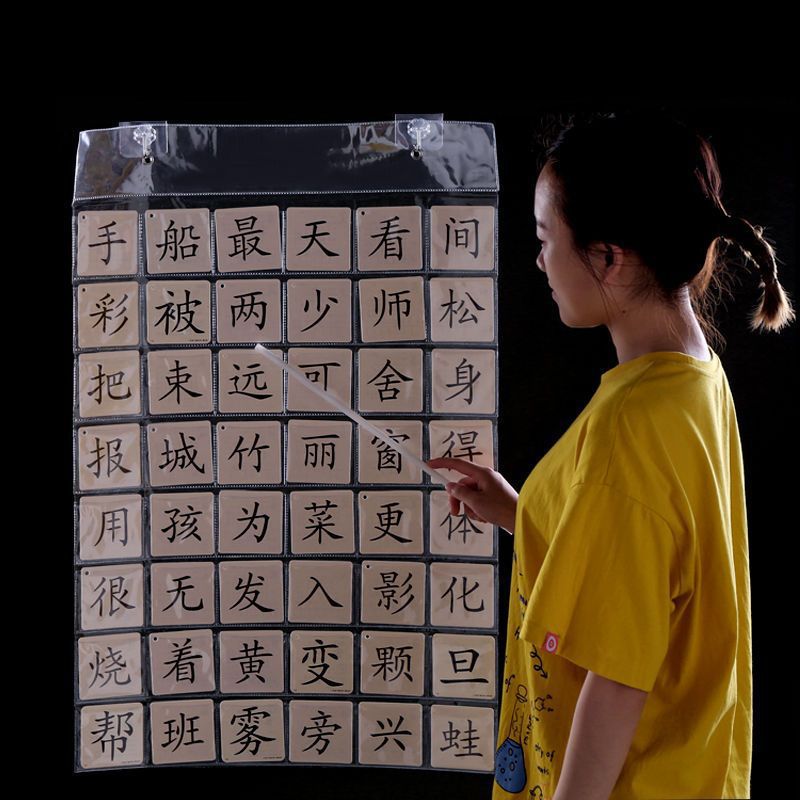 手船最天看间
彩被两少师松
把束远可舍身
报城竹丽窗得
用孩为菜更体
很无发入影化
烧着黄变颗旦
帮班雾旁兴蛙